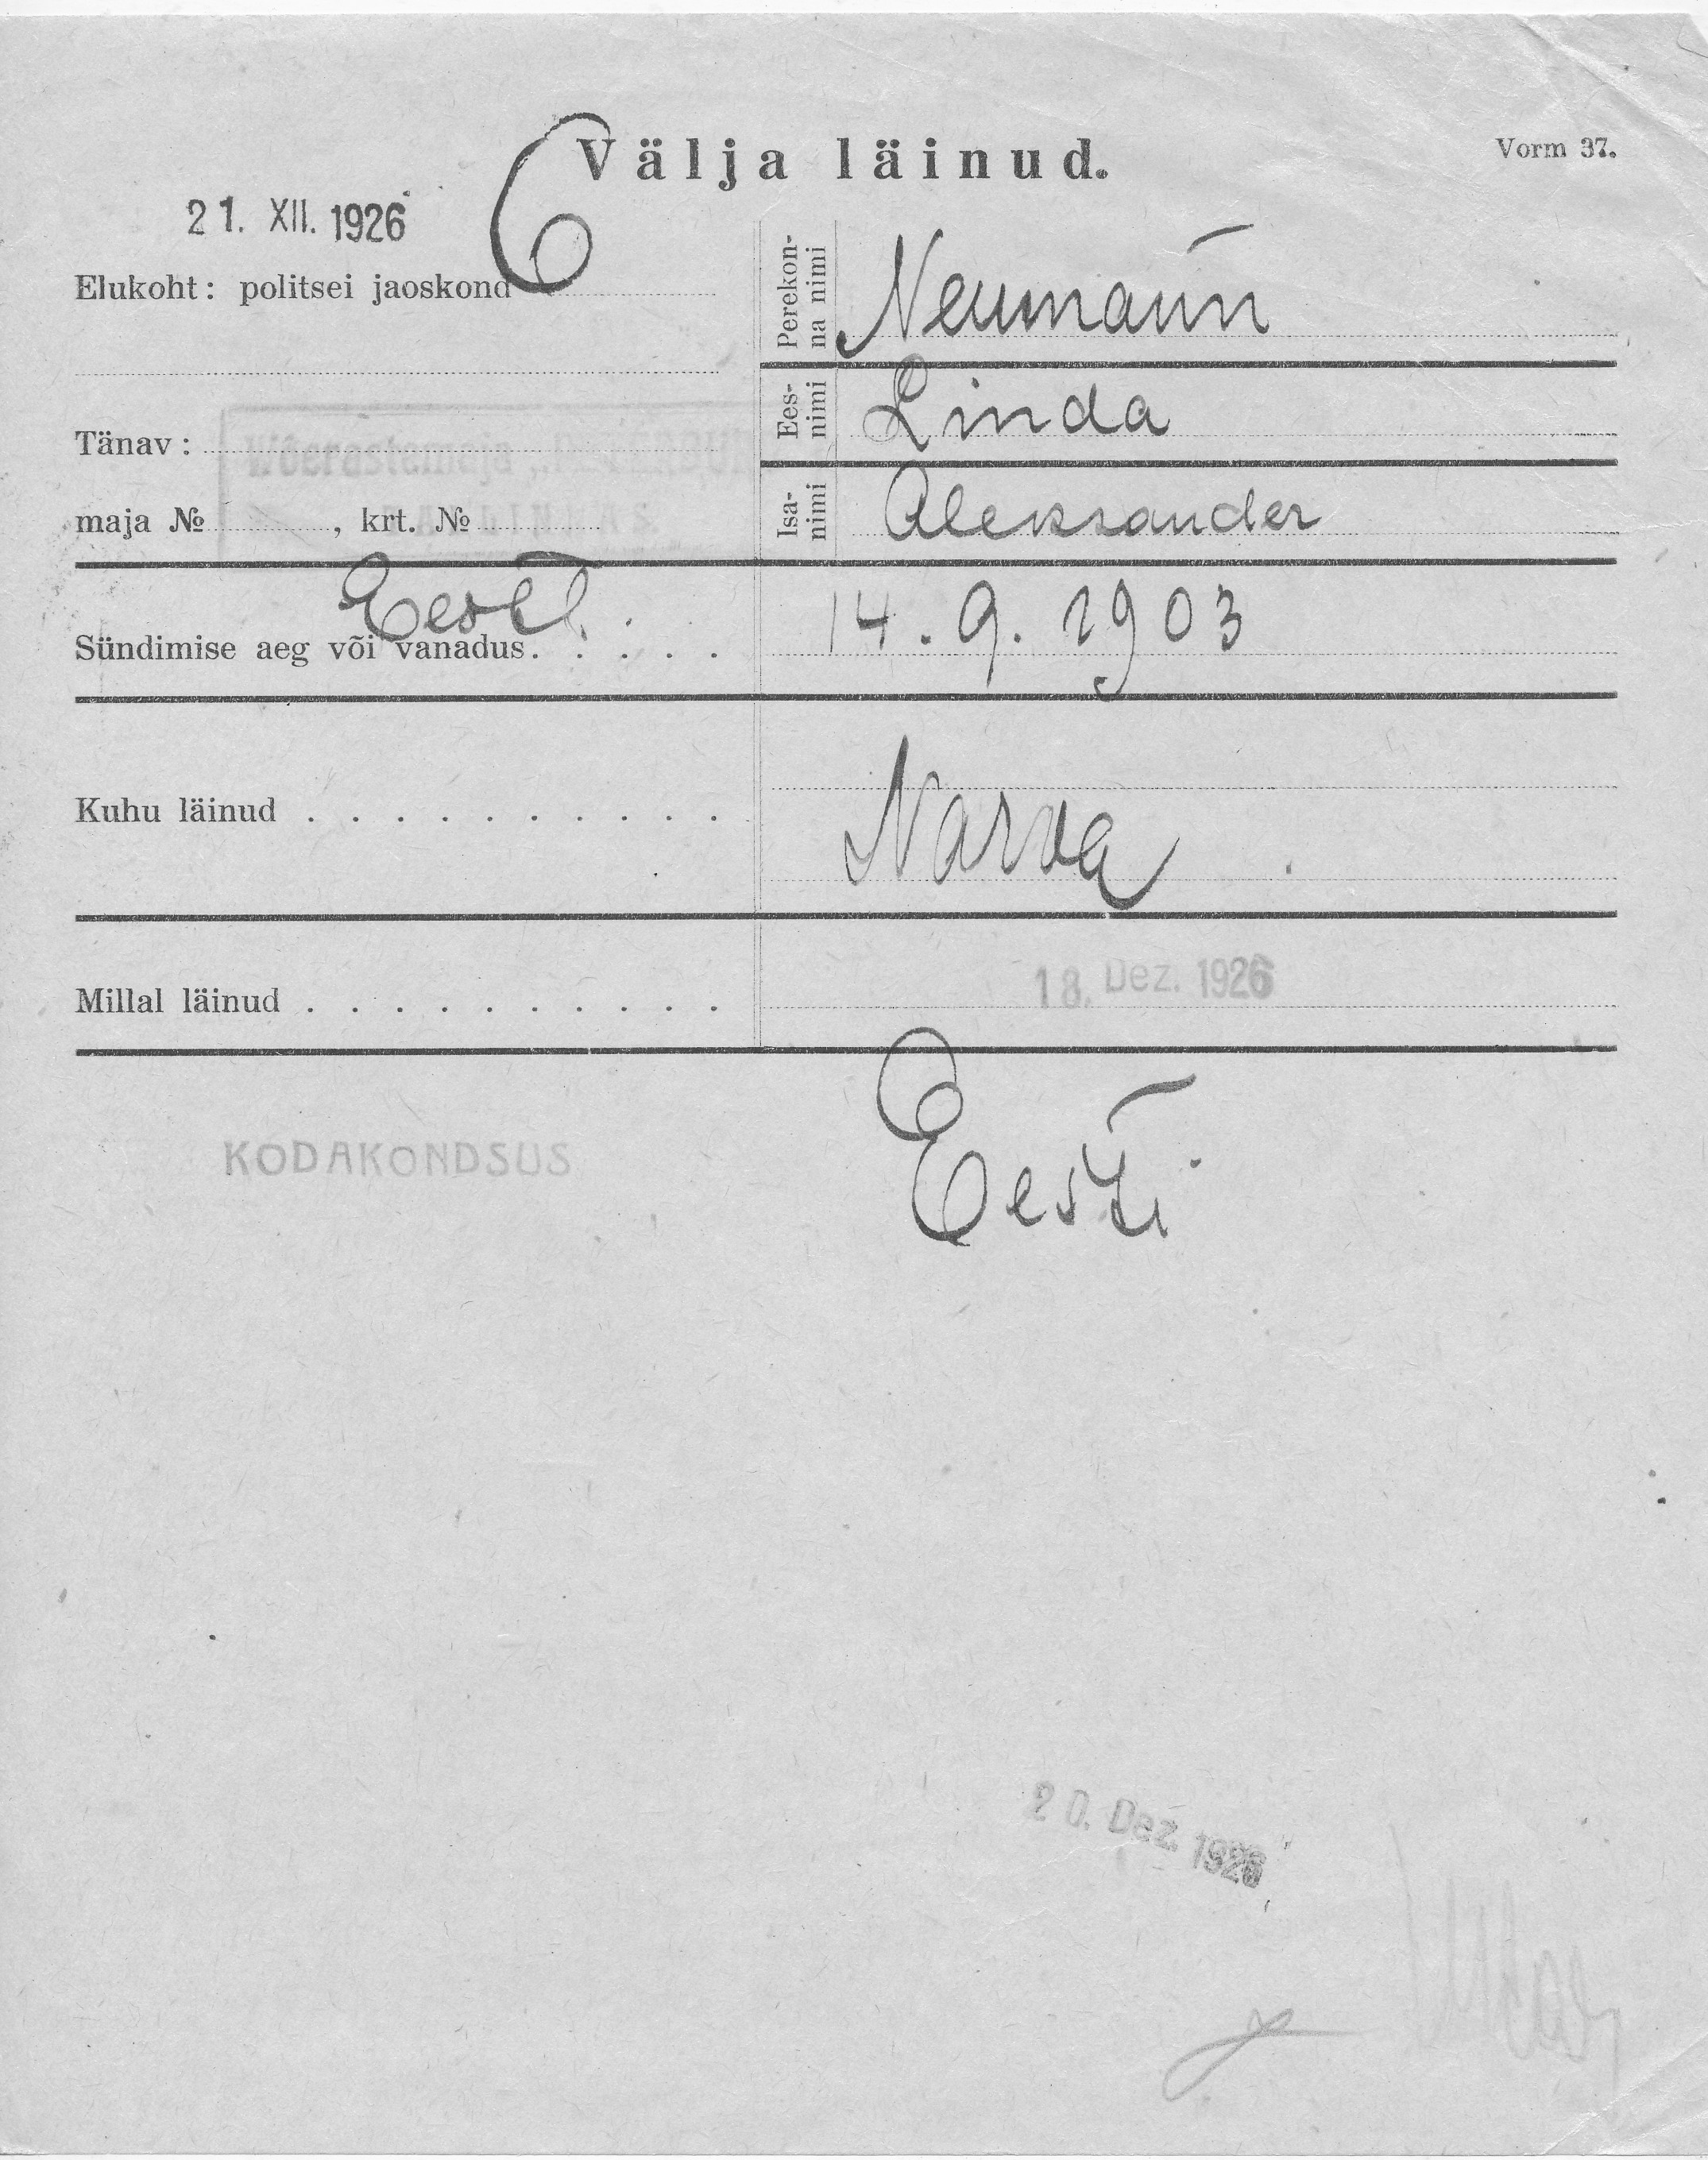 Välja läinud.
Vorm 37.
21. XII. 1926
6
Elukoht: politsei jaoskond
Perekon-
na nimi
Neumann
Ees-
nimi
Linda
Tänav:
Wõerastemaja
maja № , krt. №
Isa-
nimi
Aleksander
Eesti
Sündimise aeg või vanadus. . . . .
14. 9. 1903
Kuhu läinud . . . . . . . . . .
Narva
Millal läinud . . . . . . . . . .
18. Dez. 1926
KODAKONDSUS
Eesti
20. Dez. 1926